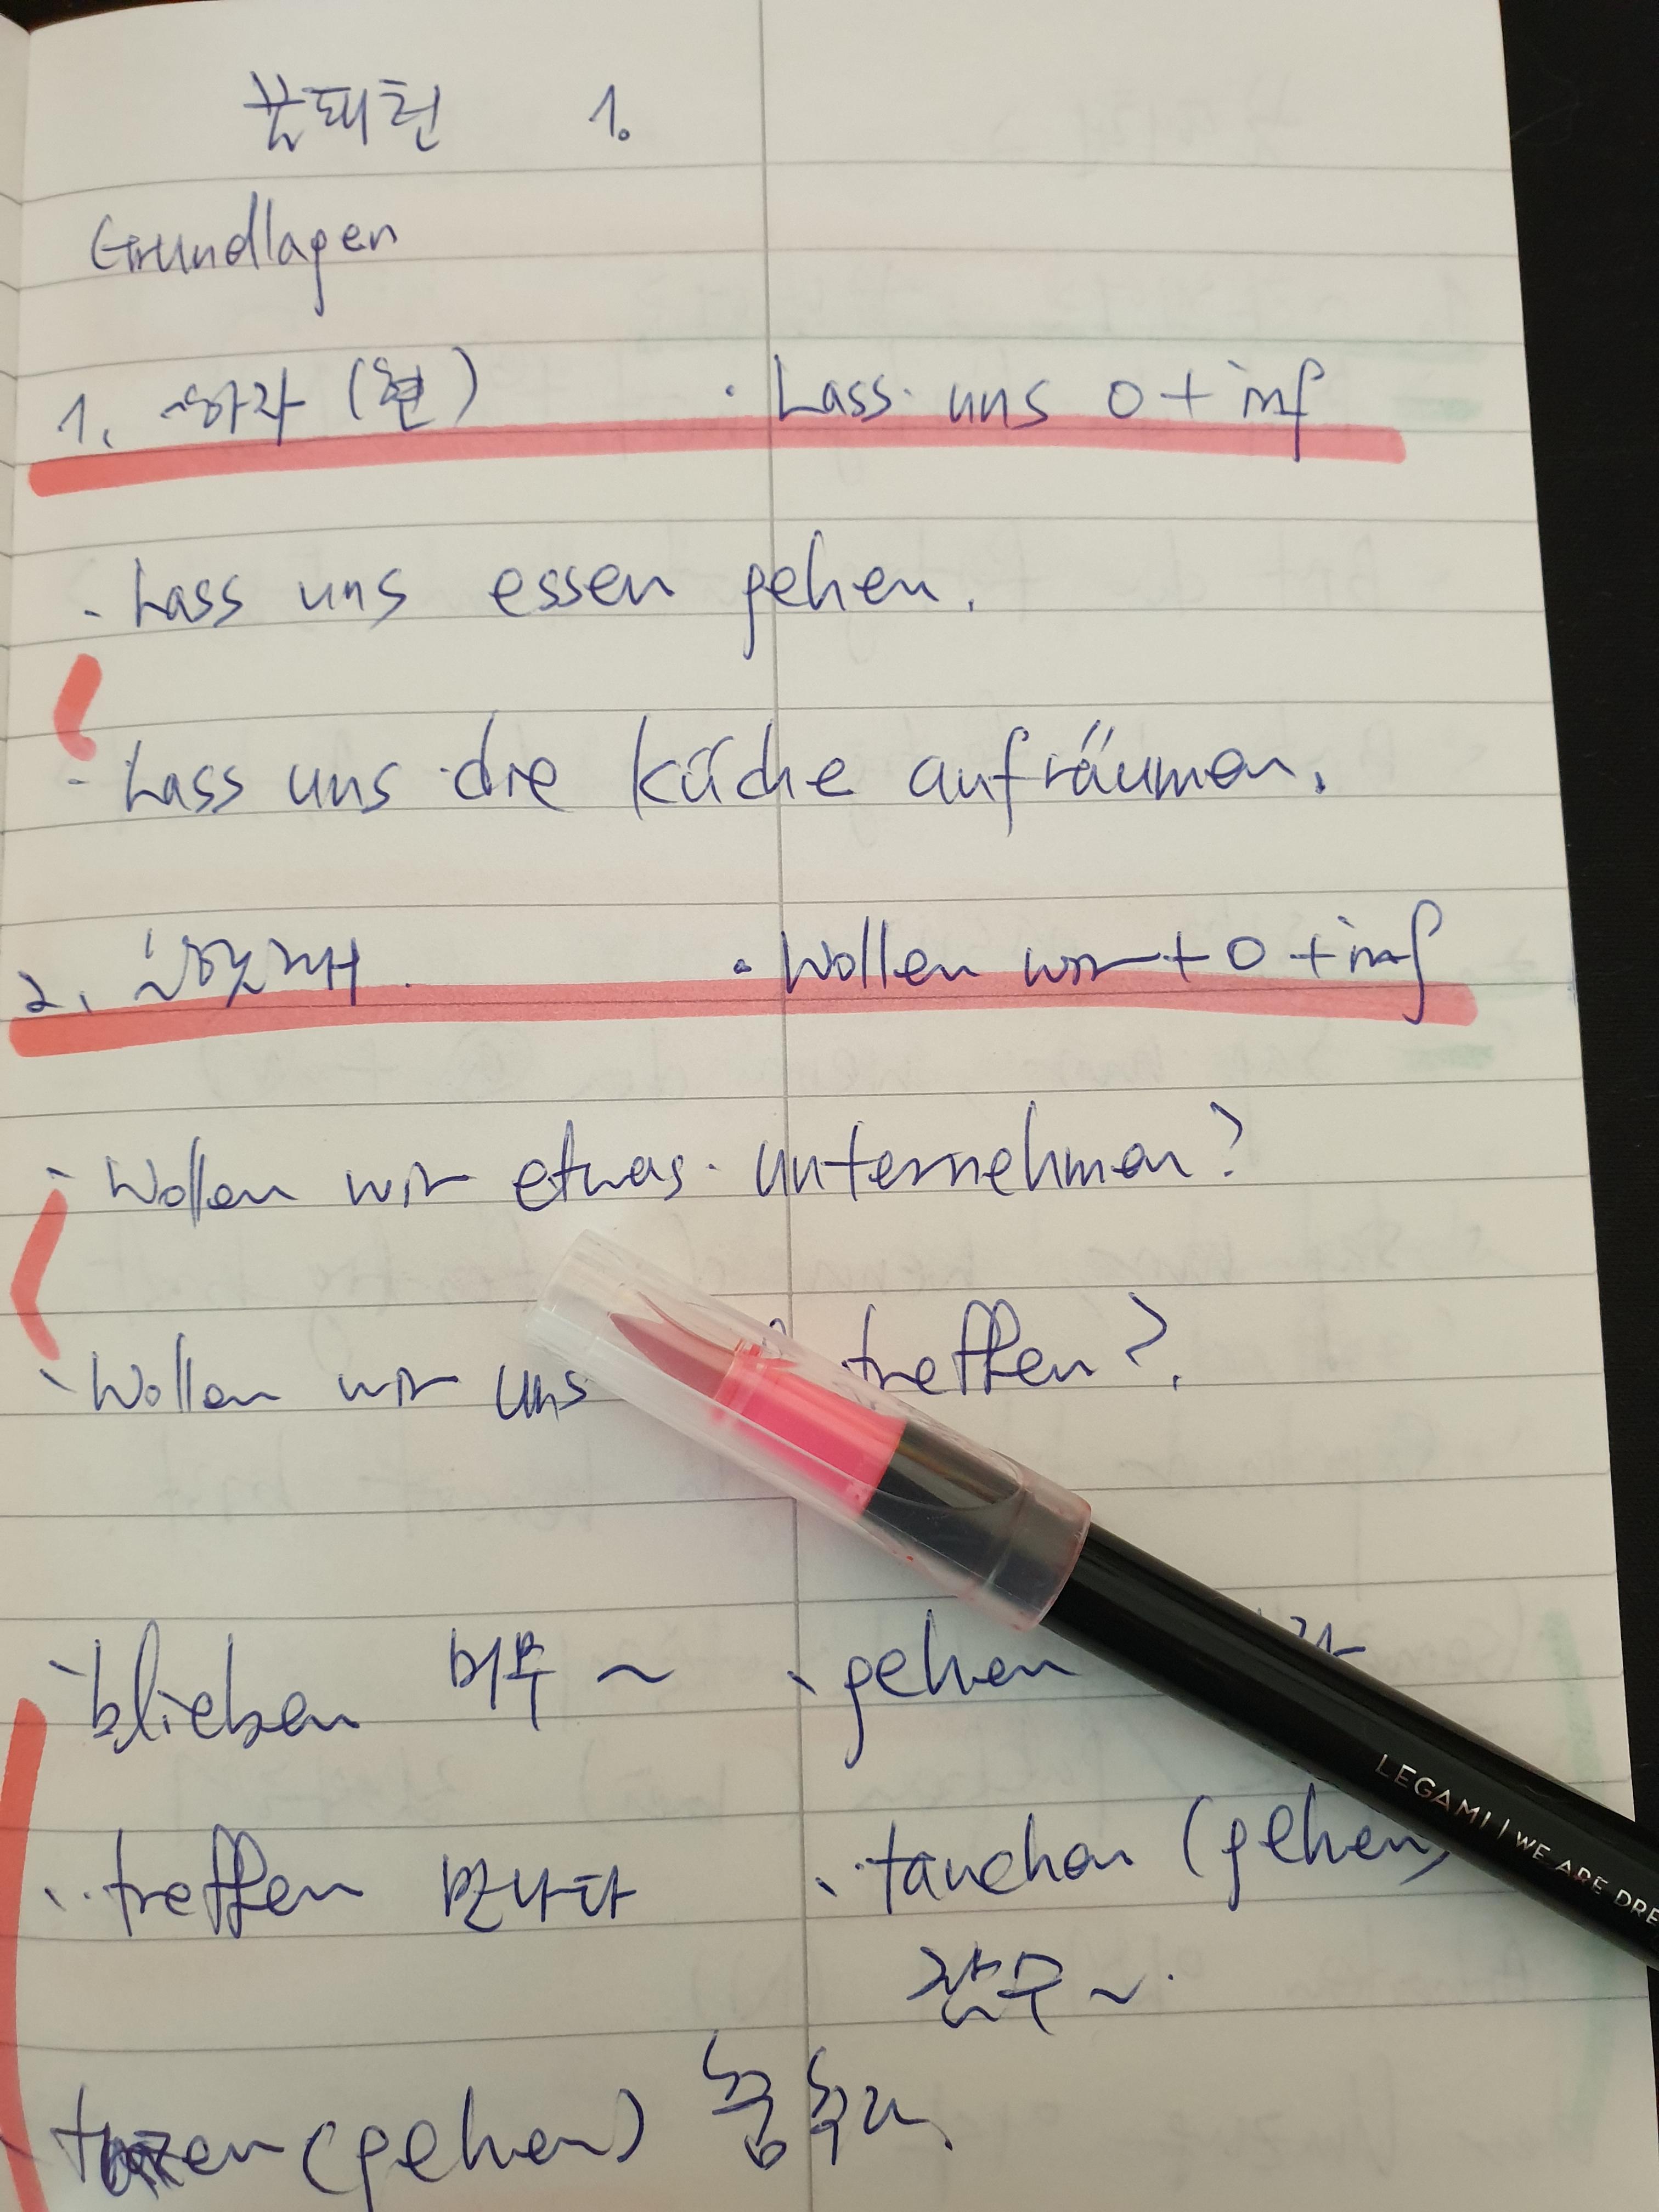 꿈패턴 1.
Grundlagen
1. ~하자 (현) · Lass uns O + inf
- Lass uns essen gehen.
- Lass uns die Küche aufräumen.
2. · Wollen wir + O + inf
- Wollen wir etwas unternehmen?
- Wollen wir uns treffen?
- blieben 머무~ - gehen
- treffen 만나다 - tauchen (gehen)
잠수~
(gehen) 춤추다
LEGAMI | WE ARE DRE